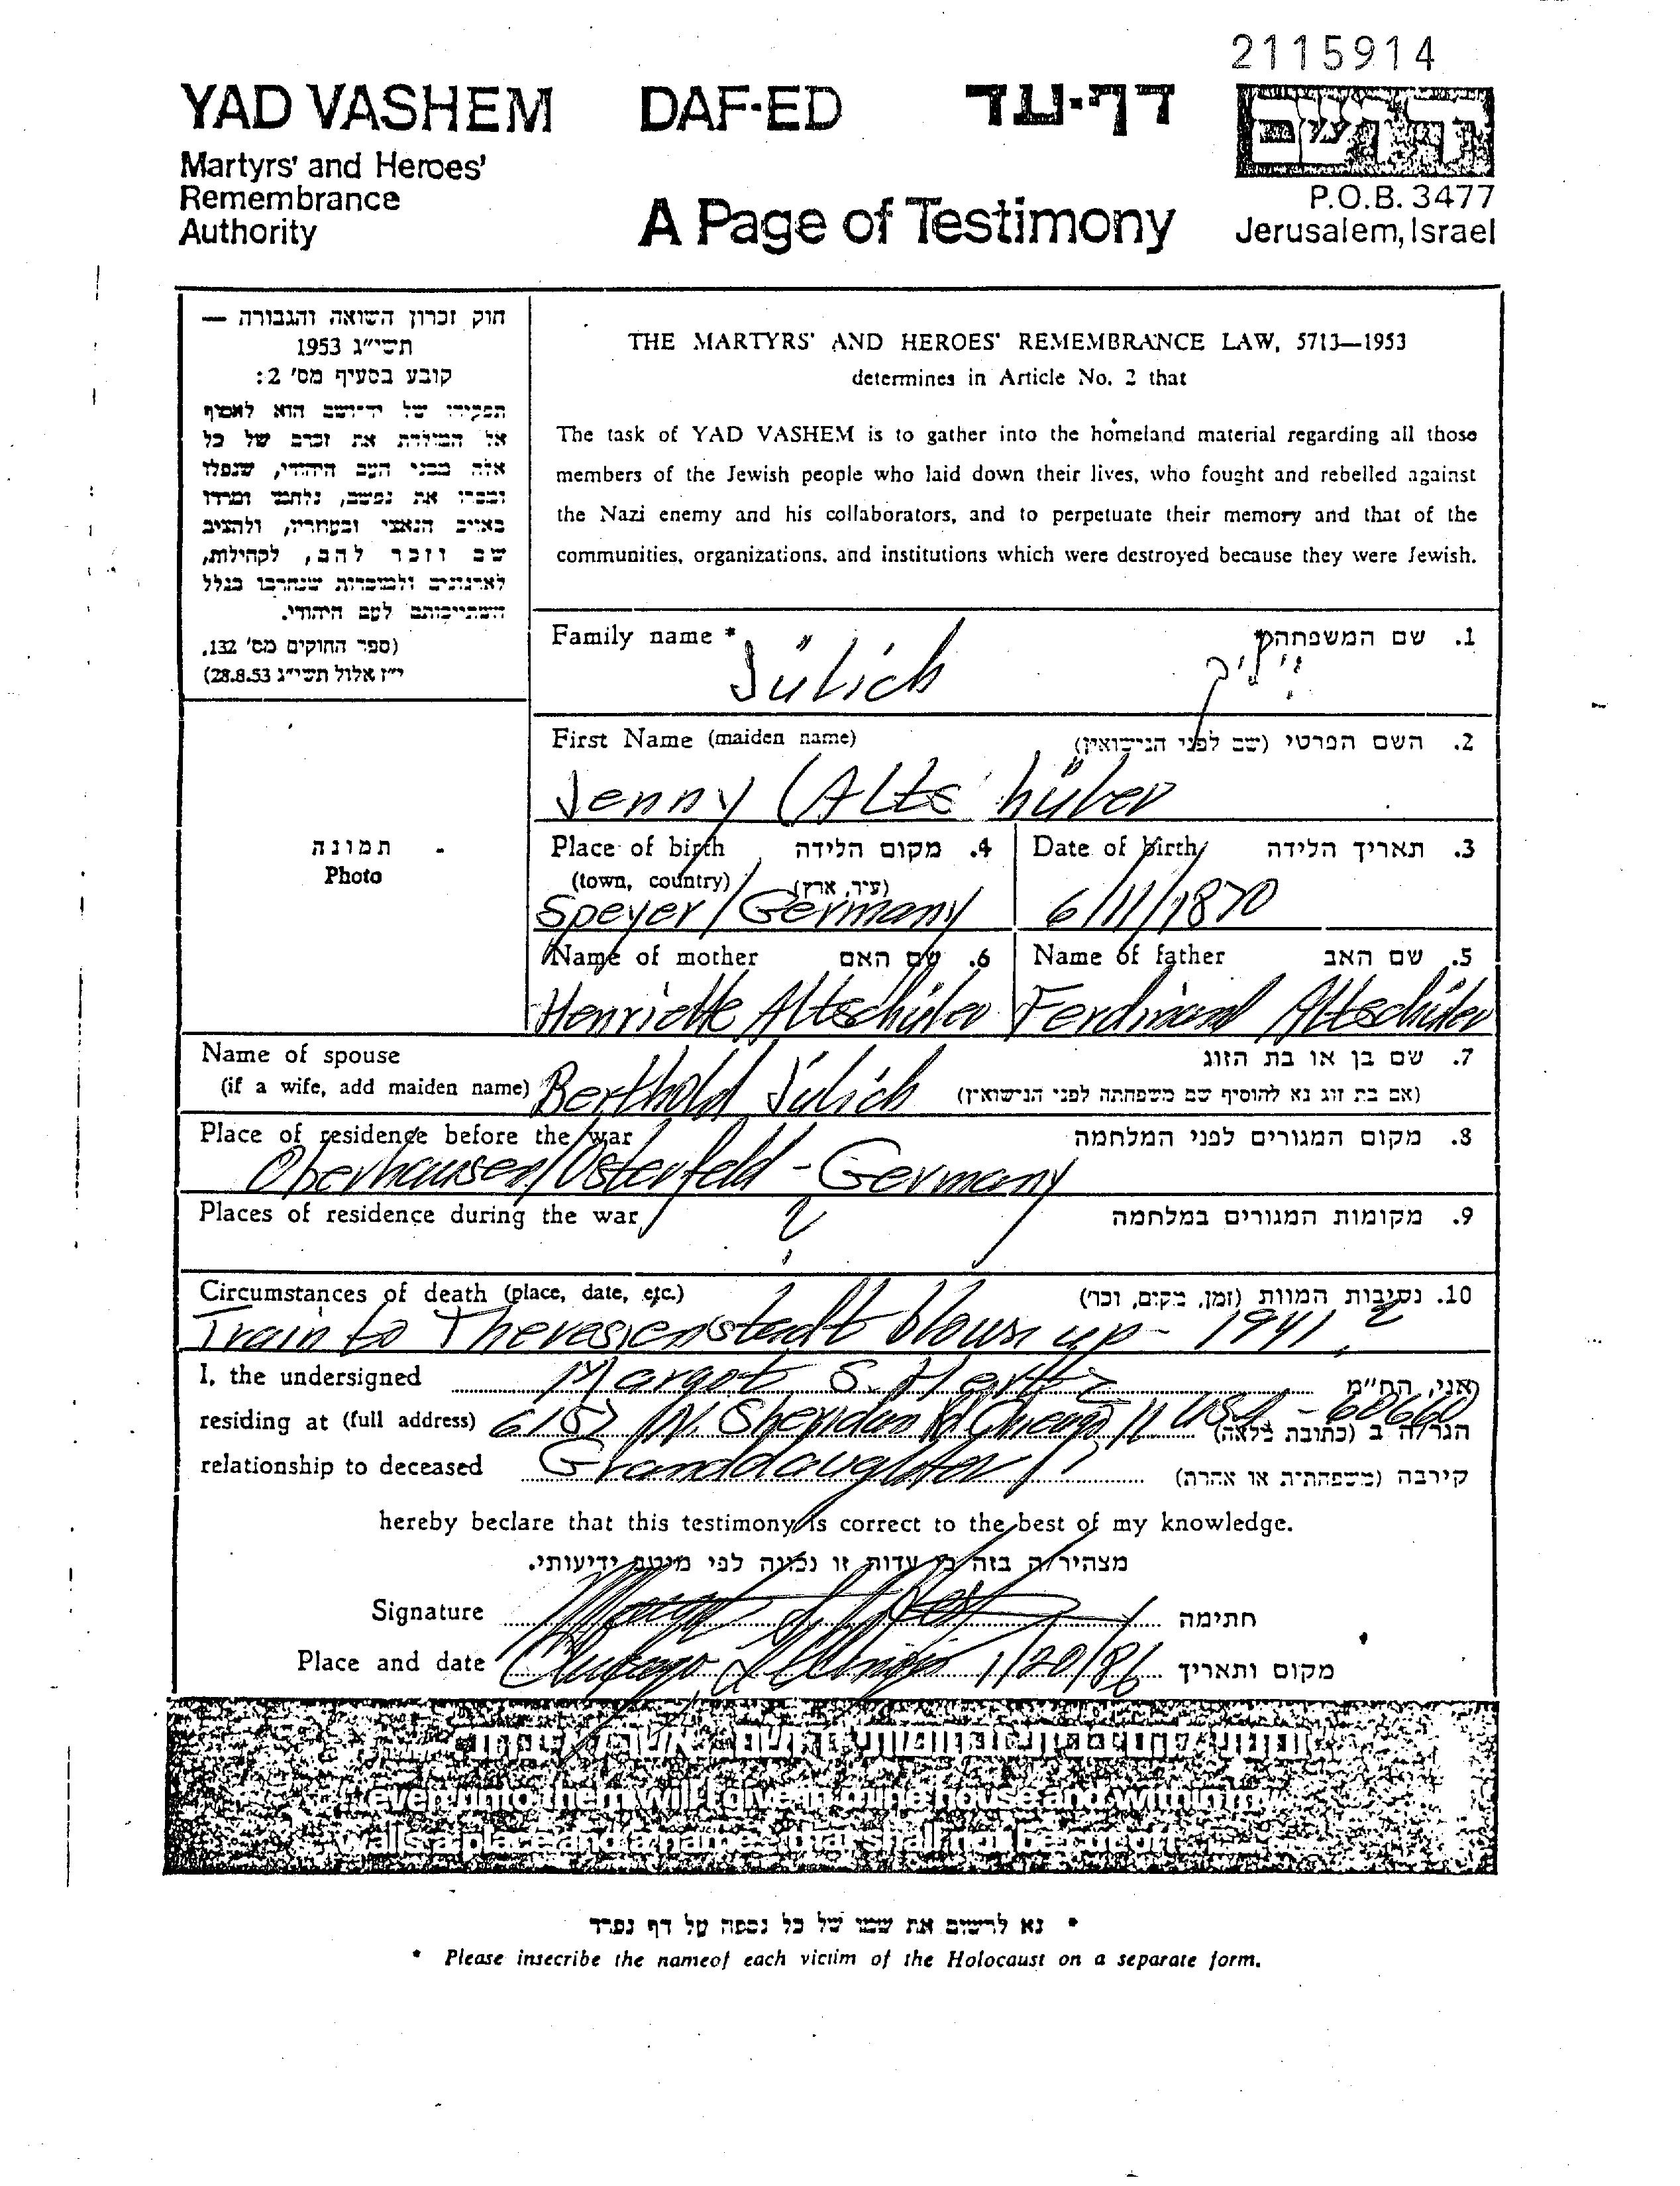 2115914
YAD VASHEM DAF-ED דף-עד
Martyrs' and Heroes'
Remembrance
Authority
A Page of Testimony
P.O.B. 3477
Jerusalem, Israel
חוק זכרון השואה והגבורה —
תשי"ג 1953
קובע בסעיף מס' 2:
תפקידו של יד-ושם הוא לאסוף
אל המולדת את זכרם של כל
אלה מבני העם היהודי, שנפלו
ומסרו את נפשם, נלחמו ומרדו
באויב הנאצי ובעוזריו, ולהציב
שם וזכר להם, לקהילות,
לארגונים ולמוסדות שנחרבו בגלל
השתייכותם לעם היהודי.
(ספר החוקים מס' 132,
י"ז אלול תשי"ג 28.8.53)
THE MARTYRS' AND HEROES' REMEMBRANCE LAW, 5713—1953
determines in Article No. 2 that
The task of YAD VASHEM is to gather into the homeland material regarding all those
members of the Jewish people who laid down their lives, who fought and rebelled against
the Nazi enemy and his collaborators, and to perpetuate their memory and that of the
communities, organizations, and institutions which were destroyed because they were Jewish.
Family name * 1. שם המשפחה*
Jülich
First Name (maiden name) 2. השם הפרטי (שם לפני הנישואין)
Jenny (Alts hüler
תמונה
Photo
Place of birth 4. מקום הלידה
(town, country) (עיר, ארץ)
Speyer / Germany
Date of birth 3. תאריך הלידה
6/11/1870
Name of mother 6. שם האם
Henriette Altschüler
Name of father 5. שם האב
Ferdinand Altschüler
Name of spouse 7. שם בן או בת הזוג
(if a wife, add maiden name) Berthold Jülich (אם בת זוג נא להוסיף שם משפחתה לפני הנישואין)
Place of residence before the war 8. מקום המגורים לפני המלחמה
Oberhausen/Osterfeld - Germany
Places of residence during the war ? 9. מקומות המגורים במלחמה
Circumstances of death (place, date, etc.) 10. נסיבות המוות (זמן, מקום, וכו')
Train to Theresienstadt blown up - 1941 ?
I, the undersigned Margot S. Hertz אני, הח"מ
residing at (full address) 6157 N. Sheridan Rd Chicago Il USA - 60660 הגר/ה ב (כתובת מלאה)
relationship to deceased Granddaughter קירבה (משפחתית או אחרת)
hereby beclare that this testimony is correct to the best of my knowledge.
מצהיר/ה בזה כי עדות זו נכונה לפי מיטב ידיעותי.
Signature חתימה
Place and date Chicago Illinois 1/20/86 מקום ותאריך
even unto them will I give in mine house and within my
walls a place and a name... that shall not be cut off
* נא לרשום את שמו של כל נספה על דף נפרד
* Please insecribe the nameof each victim of the Holocaust on a separate form.